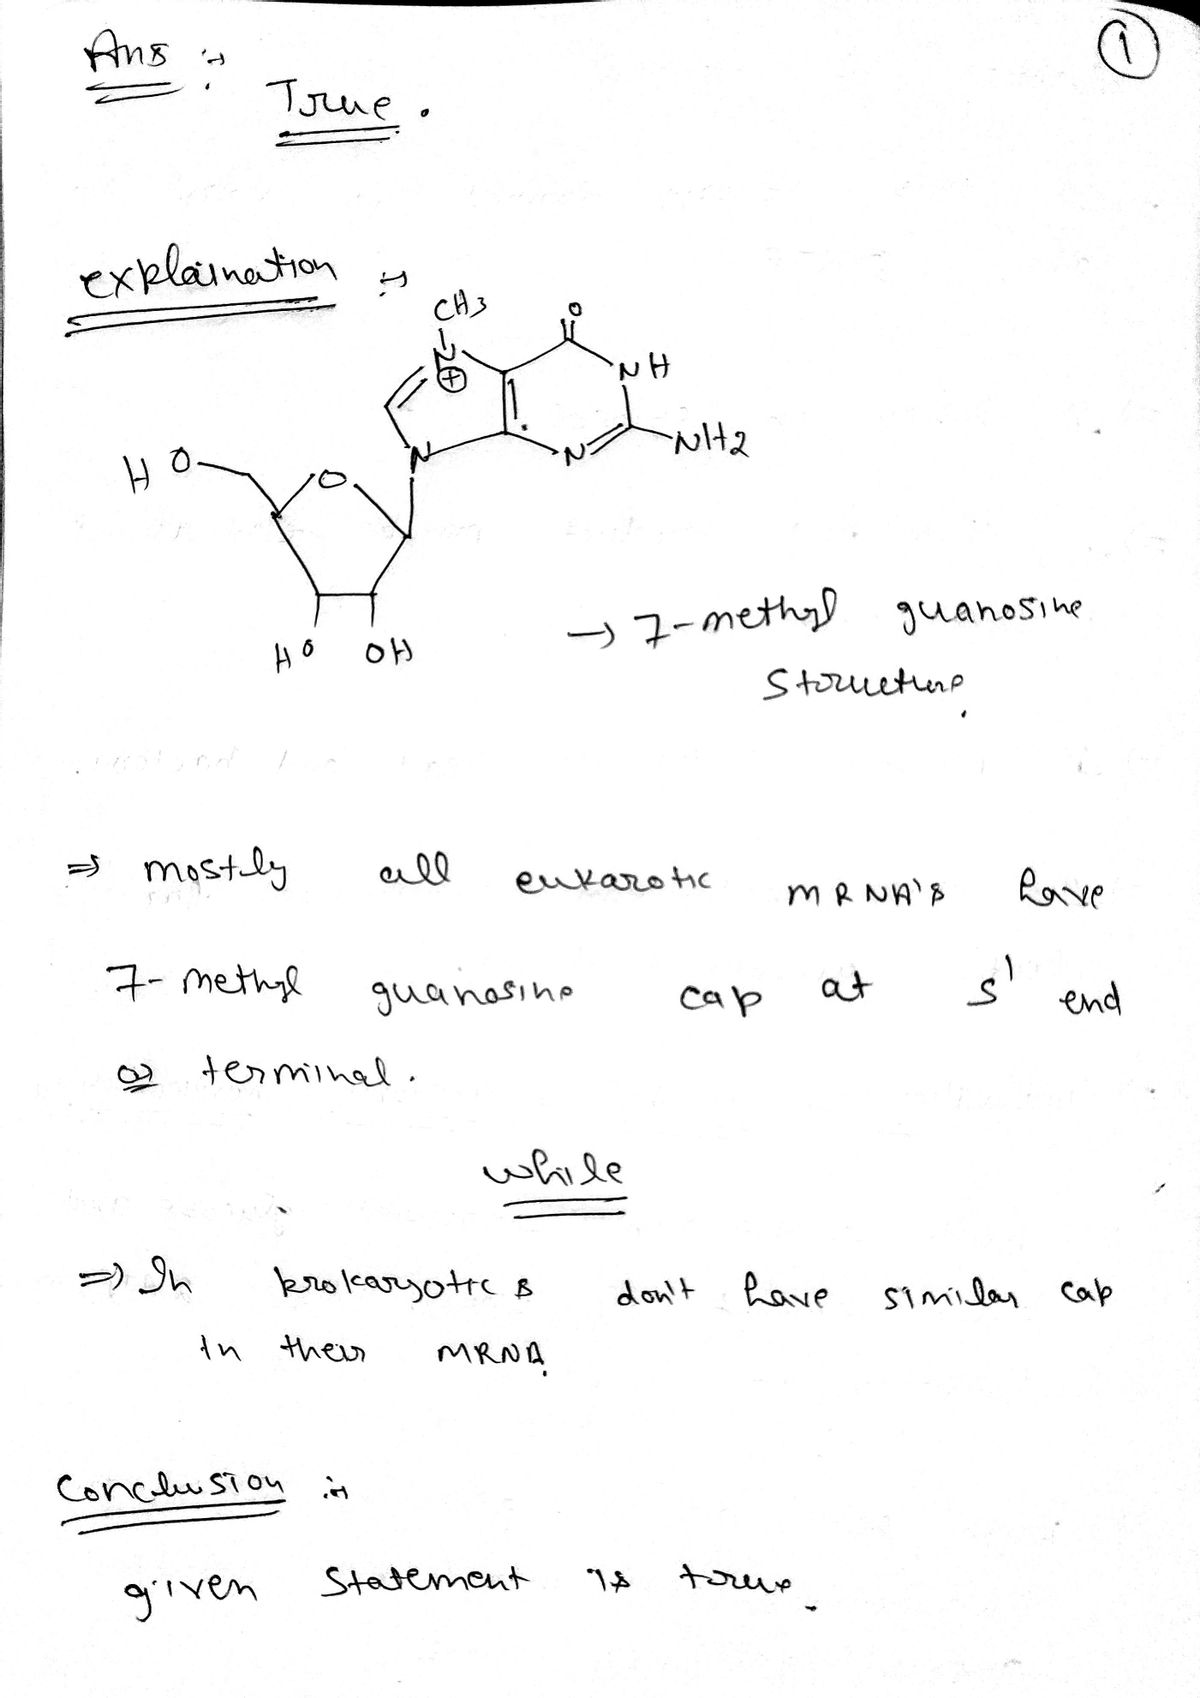 1
Ans :→
True.
explaination :→
CH3
O
N
⊕
NH
N
N
NH2
HO
O
HO OH
→ 7-methyl guanosine
Structure.
⇒ mostly all eukarotic mRNA's have
7-methyl guanosine cap at 5' end
or terminal.
while
⇒ In prokaryotics don't have similar cap
in their mRNA.
Conclusion :→
given Statement is true.